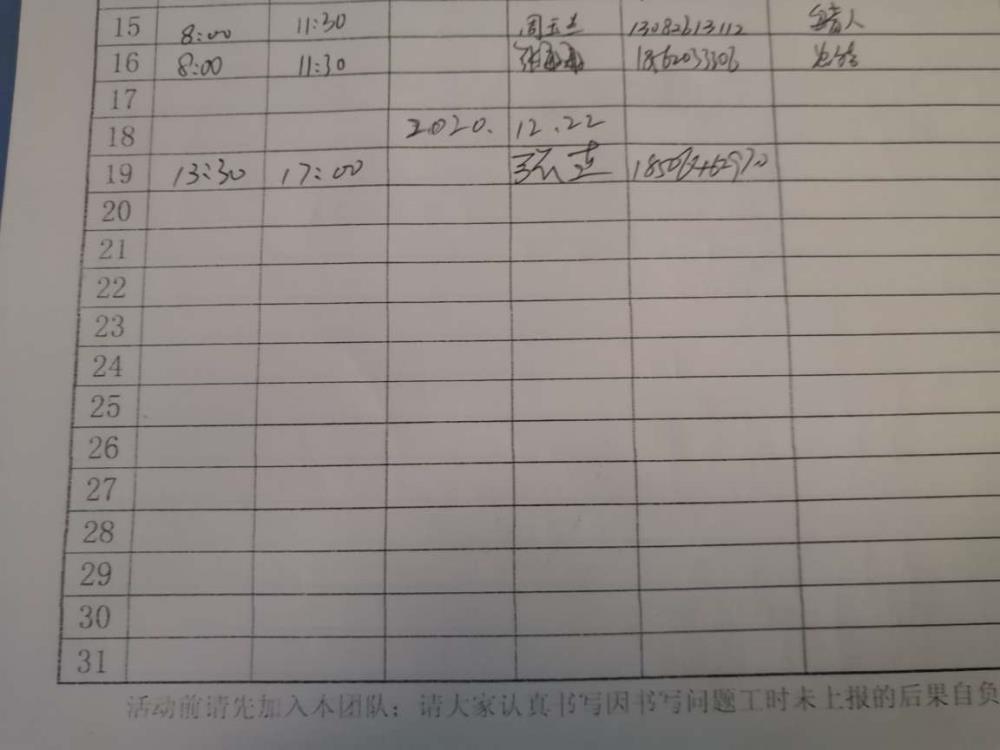 15 8:00 11:30 周玉兰 13082613112
16 8:00 11:30 1862033306
17
18 2020. 12.22
19 13:30 17:00
20
21
22
23
24
25
26
27
28
29
30
31
活动前请先加入本团队;请大家认真书写因书写问题工时未上报的后果自负